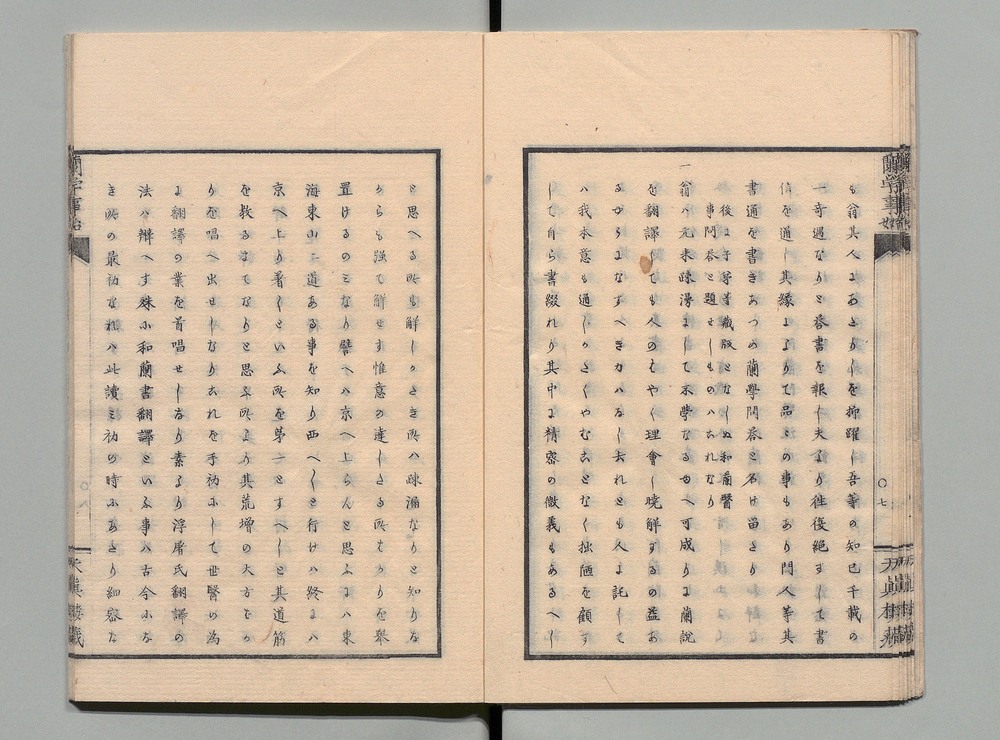 も翁其人にあさりしを抑躍し吾等の知已千載の
一奇遇なりと答書を報し夫より徃復絶すして書
信を通し其縁によりて品〻の事もあり門人等其
書通を書きあつめ蘭學問答と名け留さり
後に予等藏版となしぬ和蘭醫
事問答と題せしものハ是れなり
一翁ハ元来疎漫にして不學なるゆへ可成りに蘭説
を翻譯しても人のはやく理會し曉解するの益あ
るやうになすへき力ハなし去れとも人に託して
ハ我本意も通しかたくやむことなく拙陋を顧す
して自ら書綴れり其中に精密の微義もあるへし
と思へる所も解しかたき所ハ疎漏なりと知りな
からも強て解せす惟意の達したる所はかりを擧
置けるのミなり譬へハ京へ上らんと思ふにハ東
海東山二道ある事を知り西へ〳〵と行けハ終にハ
京へ上り着くといふ所を第一とすへしと其道筋
を教るまてなりと思ふ所より其荒增の大方をか
りを唱へ出せしなりこれを手初にして世醫の為
に翻譯の業を首唱せしなり素より浮屠氏翻譯の
法ハ辯へす殊に和蘭書翻譯といふ事ハ古今にな
き所の最初なれハ此讀ミ初の時にあたり細密な
蘭學事始
〇七
天真樓藏
蘭學事始
〇八
天真樓藏